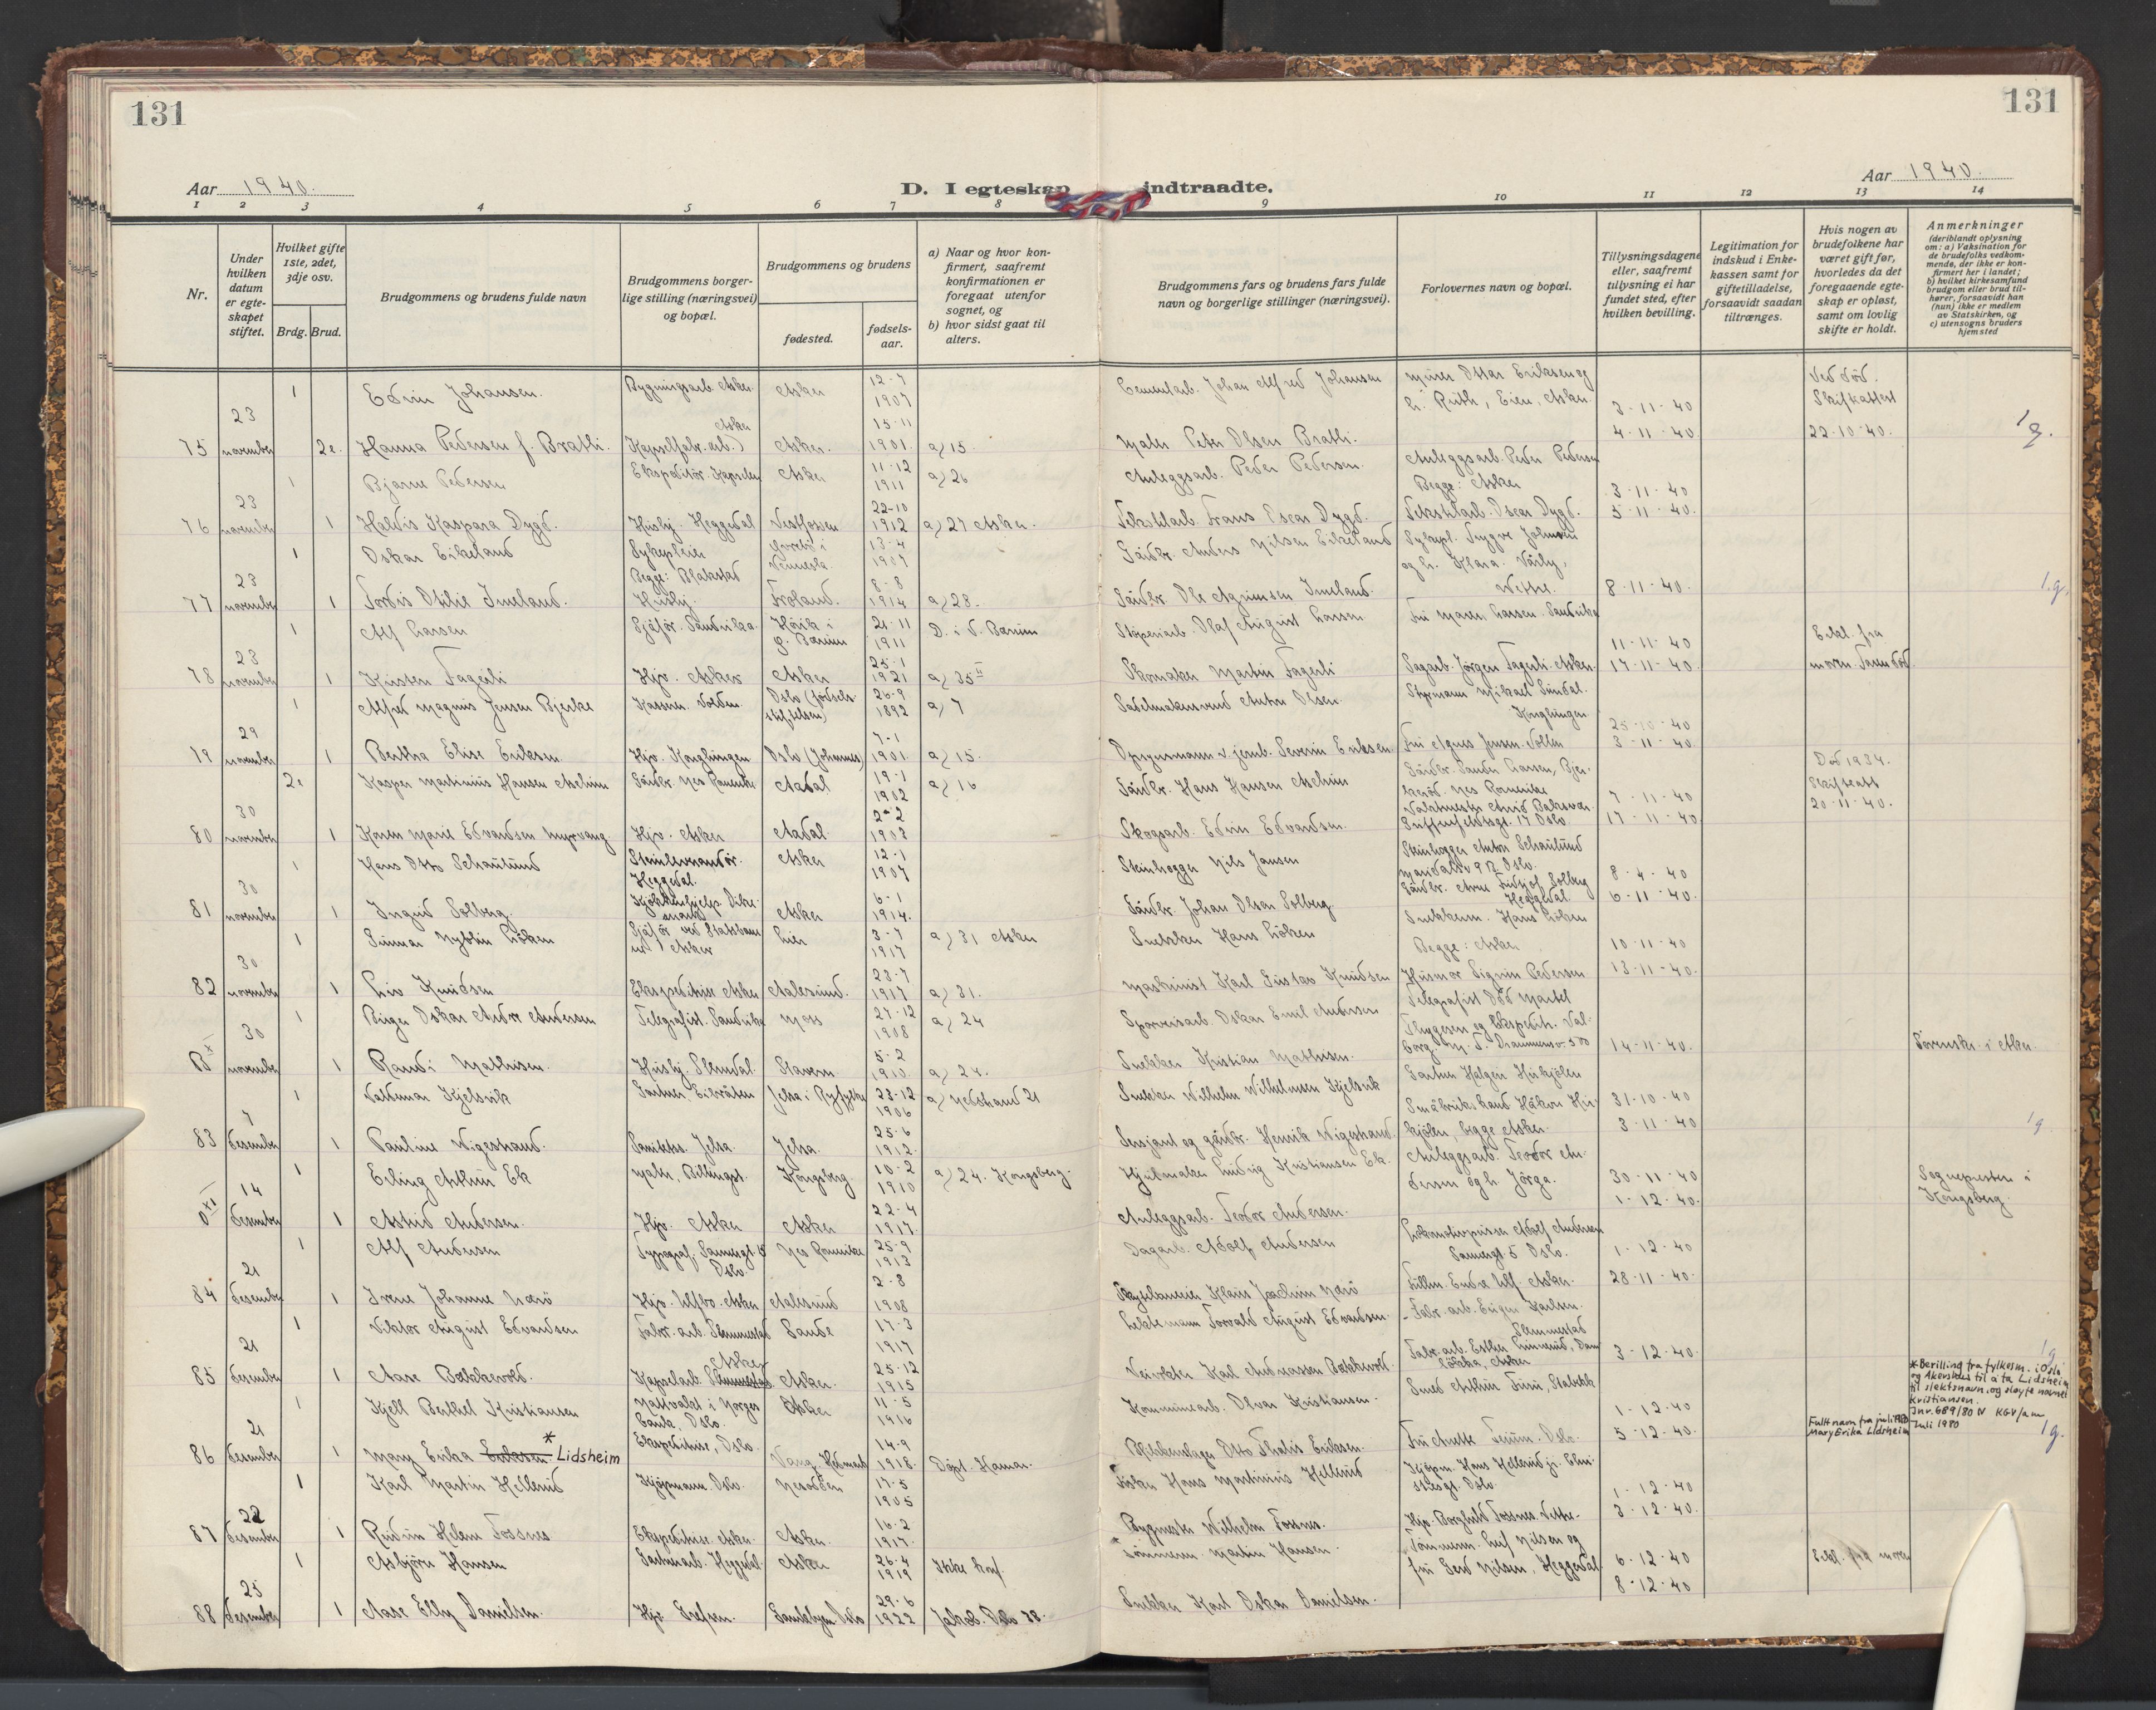 131
131
Aar 1940.
D. I egteskap indtraadte.
Aar 1940.
1 2 3 4 5 6 7 8 9 10 11 12 13 14
Nr.
Under hvilken datum er egte-skapet stiftet.
Hvilket gifte 1ste, 2det, 3dje osv.
Brdg. Brud.
Brudgommens og brudens fulde navn
Brudgommens borger-lige stilling (næringsvei) og bopæl.
Brudgommens og brudens
fødested.
fødsels-aar.
a) Naar og hvor kon-firmert, saafremt konfirmationen er foregaat utenfor sognet, og
b) hvor sidst gaat til alters.
Brudgommens fars og brudens fars fulde navn og borgerlige stillinger (næringsvei).
Forlovernes navn og bopæl.
Tillysningsdagene eller, saafremt tillysning ei har fundet sted, efter hvilken bevilling.
Legitimation for indskud i Enke-kassen samt for giftetilladelse, forsaavidt saadan tiltrænges.
Hvis nogen av brudefolkene har været gift før, hvorledes da det foregaaende egte-skap er opløst, samt om lovlig skifte er holdt.
Anmerkninger
(deriblandt oplysning om: a) Vaksination for de brudefolks vedkom-mende, der ikke er kon-firmert her i landet; b) hvilket kirkesamfund brudgom eller brud til-hører, forsaavidt han (hun) ikke er medlem av Statskirken, og c) utensogns bruders hjemsted
1 Edvin Johansen. Bygningsarb. Asker Asker 12-7 1907 Cementarb. Johan Alfred Johansen Murer Ottar Eriksen og fr. Ruth, Eien, Asker. 3-11-40 Ved død. Skifteattest
75 23 november 2e. Hanna Pedersen f. Brathi. Kapselfabr.arb.) Asker Asker. 15-11 1901. a) 15. Maler Peter Olsen Brathi. 4-11-40 22-10-40.
1 Bjarne Pedersen Ekspeditør. Asker 11-12 1911 a) 26 Anleggsarb. Peder Pedersen. Anleggsarb. Peder Pedersen Begge: Asker 3-11-40
76 23 november 1 Haldis Kaspara Dygd. Husbj. Heggedal Vestfossen 22-10 1912 a) 27 Asker. Tekstilarb. Frans Oscar Dygd. Tekstilarb. Oscar Dygd. 5-11-40.
1 Oskar Eikeland Sykepleier Begge: Blakstad Vennesla 13-4 1907 Gårdbr. Anders Nilsen Eikeland Sykepl. Trygve Johnsen og fr. Klara. Vettre.
77 23 november 1 Tordis Otilie Imeland. Husbj. Froland. 8-8 1914 a) 28. Gårdbr. Ole Imeland. 8-11-40. 1.g.
1 Alf Larsen Sjåfør. Sandvika. Høvik i Ø. Bærum 21-11 1911 D. i V. Bærum Støperiarb. Olaf August Larsen Fru Maren Larsen. Sandvika 11-11-40
78 23 november 1 Kirsten Fagerli Hjv. Asker Asker 25-1 1921 a) 35 II Skomaker Martin Fagerli Sagarb. Jørgen Fagerli. Asker. 17-11-40.
1 Alfred Magnus Jensen Bjerke Oslo (fødsels-stiftelsen) 26-9 1892 a) 7 Salmakersvend Anton Olsen Styrmann Mikael Sundal. Konglungen. 25-10-40
79 29 november 1 Bertha Elise Eriksen Hjv. Konglungen Oslo (Johannes) 7-1 1901. a) 15. Severin Eriksen. Fru Agnes Jensen. Vollen 3-11-40.
2e Kasper Martinius Hansen Gårdbr. Nes Romerike Aadal 19-1 1902 a) 16 Gårdbr. Hans Hansen Gårdbr. Gunder Larsen, Nes Romerike 7-11-40 Død 1934. Skifteatt 20-11-40.
80 30 november 1 Karen Marie Edvardsen Myrvang Hjv. Asker Aadal. 2-2 1903 Skogsarb. Edvin Edvardsen. 17 Oslo. 17-11-40
1 Hans Otto Schaulund Steinleverandør. Heggedal. Asker 12-1 1907 Steinhogger Nils Jansen Steinhogger Anton Schaulund Oslo. 8-4-40
81 30 november 1 Ingrid Solberg. Kjøkkenhjelp. Dikemark Asker 6-1 1914. Gårdbr. Johan Olsen Solberg. Gårdbr. Arne Fridtjof Solberg Heggedal. 6-11-40.
1 Gunnar Nybliin Løken Sjåfør ved Statsbanene Asker Lier 3-7 1917 a) 31 Asker Snekker Hans Løken Snekkerm. Hans Løken Begge: Asker 10-11-40
82 30 november 1 Liv Knudsen Ekspeditrise Asker Aalesund. 23-7 1917 a) 31. Maskinist Karl Gustav Knudsen Husmor Sigrun Pedersen 13-11-40.
1 Birger Oskar Andor Andersen Telegrafist. Sandvika Moss 27-12 1908 a) 24 Sporveisarb. Oskar Emil Andersen Telegrafist Odd Martel Thygesen og Ekspeditr. Valborg
B XI 30 november 1 Randi Mathisen. Husbj. Slemdal. Stavern 5-2 1910. a) 24. Snekker Kristian Mathisen. 14-11-40. Sorenskr. i Asker.
1 Valdemar Kjelsvik Gartner. Jelsa i Ryfylke 23-12 1906 a) Nedstrand 21 Snekker Wilhelm Wilhelmsen Kjelsvik Gartner Halgeir Hurkjølen 31-10-40
83 7 desember 1 Pauline Wigestrand. Jelsa. Jelsa. 25-6 1912. Sersjant og gårdbr. Henrik Wigestrand. Håkon Hurkjølen, begge Asker. 3-11-40 1g
1 Erling Arthur Ek Maler, Billingst. Kongsberg. 10-2 1910 a) 24. Kongsberg. Hjulmaker Ludvig Kristiansen Ek. Anleggsarb. Teodor Andersen og fr. Jörga. 30-11-40 Sognepresten i Kongsberg.
14 desember 1 Astrid Andersen. Hjv. Asker Asker 22-4 1917 Anleggsarb. Teodor Andersen. 1-12-40.
1 Alf Andersen Typograf. Oslo. Nes Romerike 25-9 1913 Dagarb. Adolf Andersen Lokomotivpusser Adolf Andersen 5 Oslo. 1-12-40
84 21 desember 1 Irene Johanne Nærø Hjv. Asker Aalesund 2-8 1908 Klaus Joachim Nærø Asker. 28-11-40.
1 Viktor August Edvardsen Fabr. arb. Slemmestad Sande 17-3 1917 Torvald August Edvardsen. Fabr. arb. Eugen Karlsen. Slemmestad
85 21 desember 1 Aase Bakkevold. Kapselarb. Asker Asker. 25-12 1915 Karl Andreassen Bakkevold. Fabr. arb. Asker 3-12-40. 1g
1 Kjell Berthel Kristiansen Nattvakt i Norges bank, Oslo. Asker 11-5 1916 Kommunearb. Olvar Kristiansen. Smed Arthur Stabekk 1-12-40
86 21 desember 1 Mary Erika Eriksen * Lidsheim Ekspeditrise, Oslo. Vang. Hedmark 14-9 1918. Døpt. Hamar. Otto Thalis Eriksen. Oslo. 5-12-40.
Fullt navn fra juli 1980 Mary Erika Lidsheim
* Bevilling fra fylkesm. i Oslo og Akershus til å ta Lidsheim til slektsnavn og sløyfe navnet Kristiansen. Jnr. 689/80 N KGV/am Juli 1980 1g.
1 Karl Martin Hellerud Kjøpmann. Oslo. Nesodden 17-5 1905 Fisker Hans Martinius Hellerud Kjøpm. Hans Hellerud jr. Oslo. 1-12-40
87 22 desember 1 Reidun Helene Fossnes Ekspeditrise Asker. Asker. 16-2 1917. Wilhelm Fossnes. Hjv. Borghild Fossnes. Vettre. 3-12-40.
1 Asbjørn Hansen Gartnerarb. Heggedal Asker 26-4 1919 Ikke konf. Tømmerm. Martin Hansen. Tømmerm. Leif Nilsen og fru Gerd Nilsen, Heggedal 6-12-40
88 25 desember 1 Aase Elly Danielsen. Hjv. Grefsen. Gamlebyen Oslo 29-6 1922 Jakob. Oslo 38. Snekker Karl Oskar Danielsen. 8-12-40